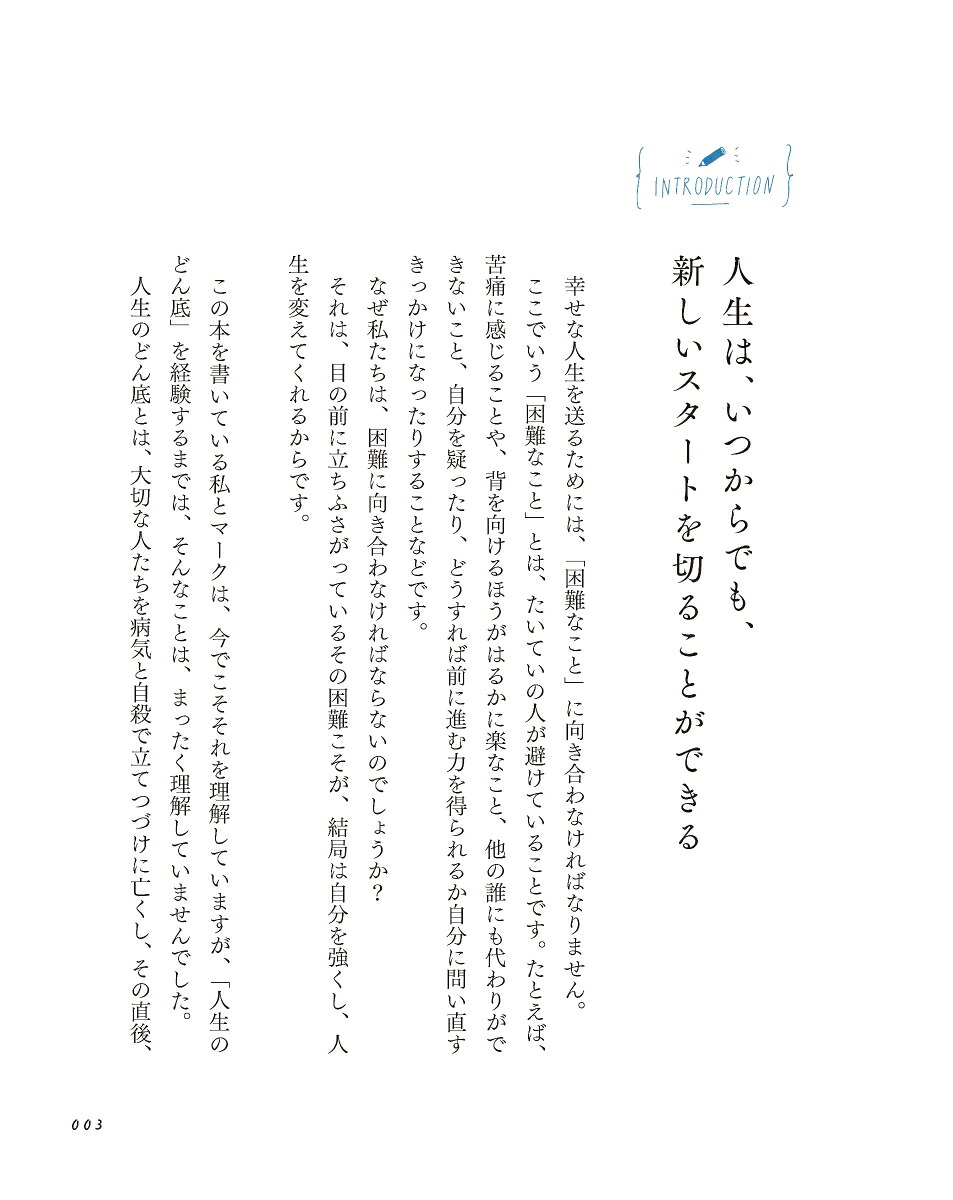 INTRODUCTION
人生は、いつからでも、
新しいスタートを切ることができる
幸せな人生を送るためには、「困難なこと」に向き合わなければなりません。
ここでいう「困難なこと」とは、たいていの人が避けていることです。たとえば、
苦痛に感じることや、背を向けるほうがはるかに楽なこと、他の誰にも代わりがで
きないこと、自分を疑ったり、どうすれば前に進む力を得られるか自分に問い直す
きっかけになったりすることなどです。
なぜ私たちは、困難に向き合わなければならないのでしょうか？
それは、目の前に立ちふさがっているその困難こそが、結局は自分を強くし、人
生を変えてくれるからです。
この本を書いている私とマークは、今でこそそれを理解していますが、「人生の
どん底」を経験するまでは、そんなことは、まったく理解していませんでした。
人生のどん底とは、大切な人たちを病気と自殺で立てつづけに亡くし、その直後、
003